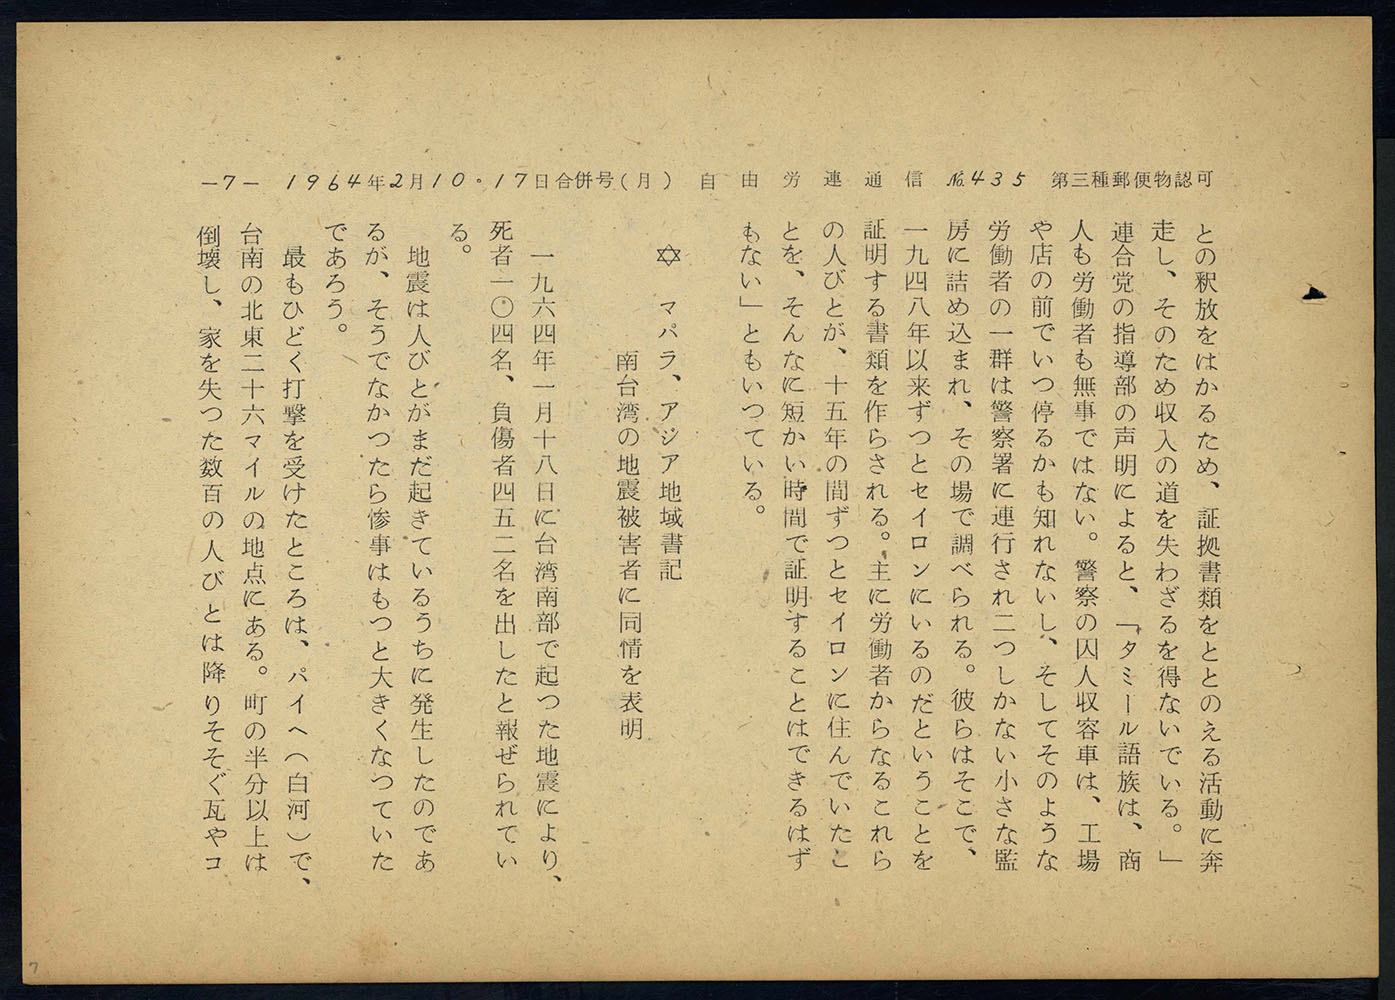 －7－　1964年2月10・17日合併号(月)　自由労連通信　№435　第三種郵便物認可
との釈放をはかるため、証拠書類をととのえる活動に奔
走し、そのため収入の道を失わざるを得ないでいる。」
連合党の指導部の声明によると、「タミール語族は、商
人も労働者も無事ではない。警察の囚人収容車は、工場
や店の前でいつ停るかも知れないし、そしてそのような
労働者の一群は警察署に連行され二つしかない小さな監
房に詰め込まれ、その場で調べられる。彼らはそこで、
一九四八年以来ずつとセイロンにいるのだということを
証明する書類を作らされる。主に労働者からなるこれら
の人びとが、十五年の間ずつとセイロンに住んでいたこ
とを、そんなに短かい時間で証明することはできるはず
もない」ともいつている。
✡　マパラ、アジア地域書記
南台湾の地震被害者に同情を表明
一九六四年一月十八日に台湾南部で起つた地震により、
死者一〇四名、負傷者四五二名を出したと報ぜられてい
る。
地震は人びとがまだ起きているうちに発生したのであ
るが、そうでなかつたら惨事はもつと大きくなつていた
であろう。
最もひどく打撃を受けたところは、パイヘ（白河）で、
台南の北東二十六マイルの地点にある。町の半分以上は
倒壊し、家を失つた数百の人びとは降りそそぐ瓦やコ
7